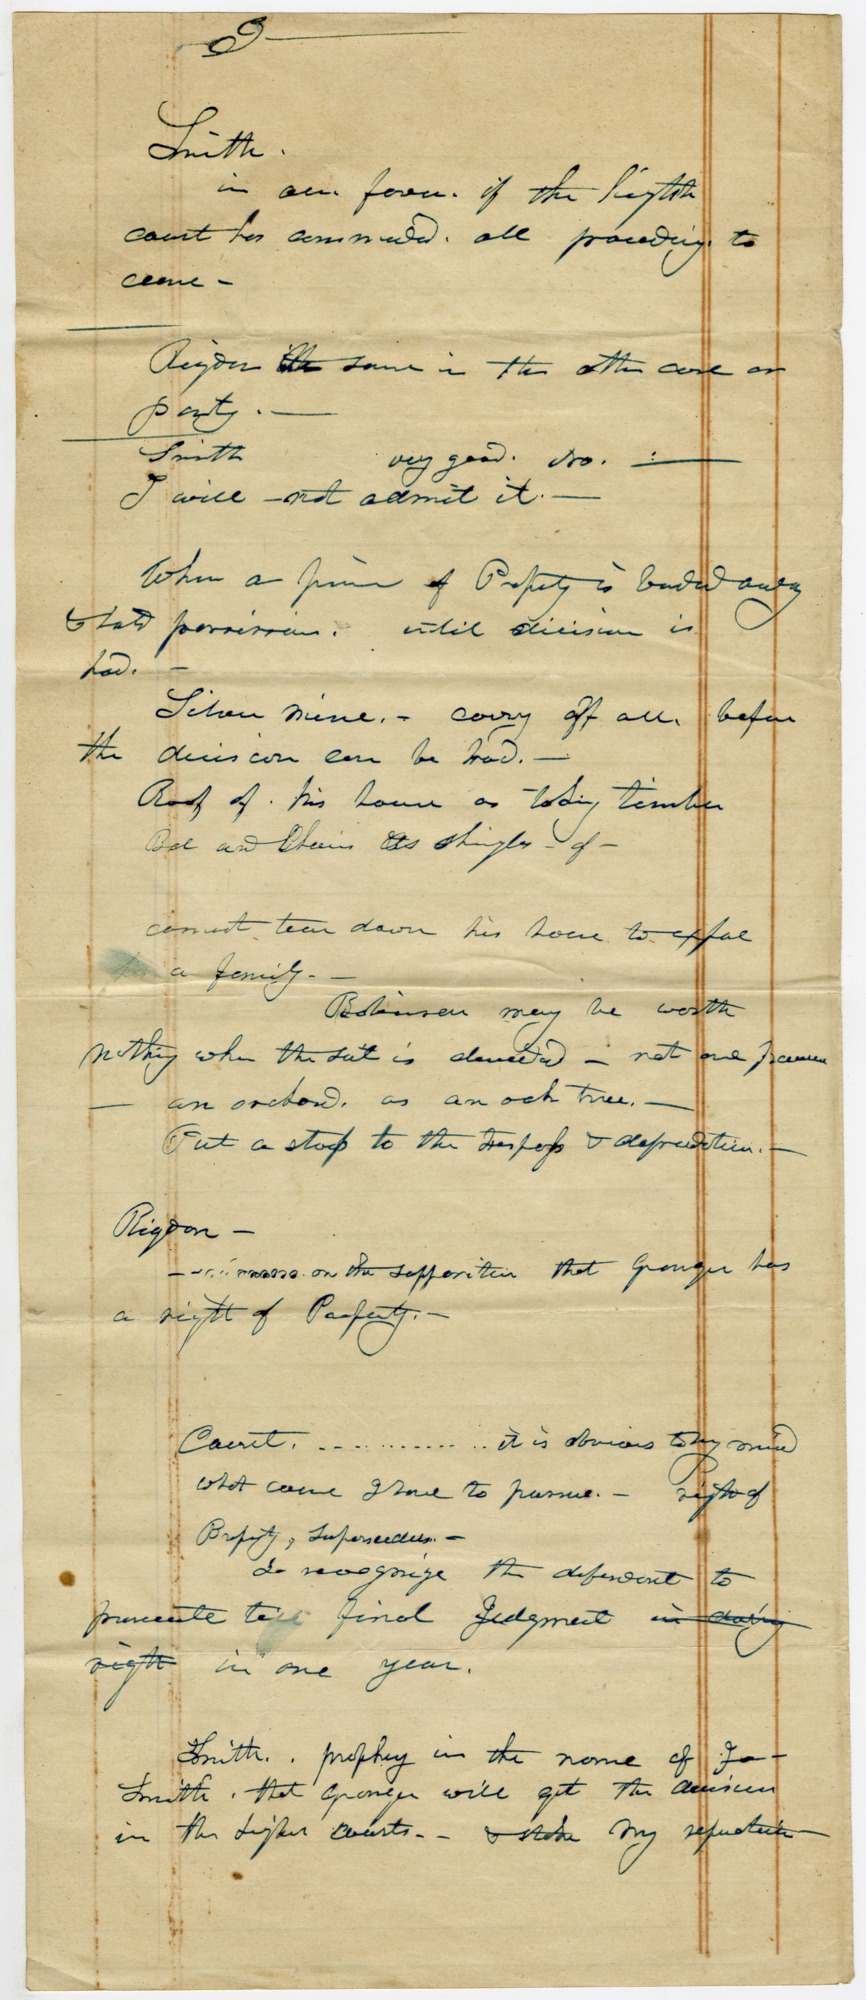 9
Smith.
in our favor. if the
court has commanded. all proceedings to
cease -
Rigdon same in the other case or
party. —
Smith very good. No. : —
I will not admit it. —
When a piece of Property is away
& hold possession. until decision is
had. —
Silver mine. - carry off all. before
the decision can be had. —
Roof of. his house as timber
Bed and Chairs as shingles - of -
cannot tear down his house to
a family. —
Robinson may be worth
nothing when the suit is - not one
— an orchard. as an oak tree. —
Put a stop to the trespass & depredation. —
Rigdon —
on the supposition that Granger has
a right of Property. —
Court. . . . . . . . . . . . . it is obvious to my mind
what course I have to pursue. — right of
Property, Supersedeas. —
to recognize the defendant to
prosecute till final Judgment in
right in one year.
Smith. . prophcy in the name of Jo-
Smith. that Granger will get the decision
in the higher courts. - & stake my reputation